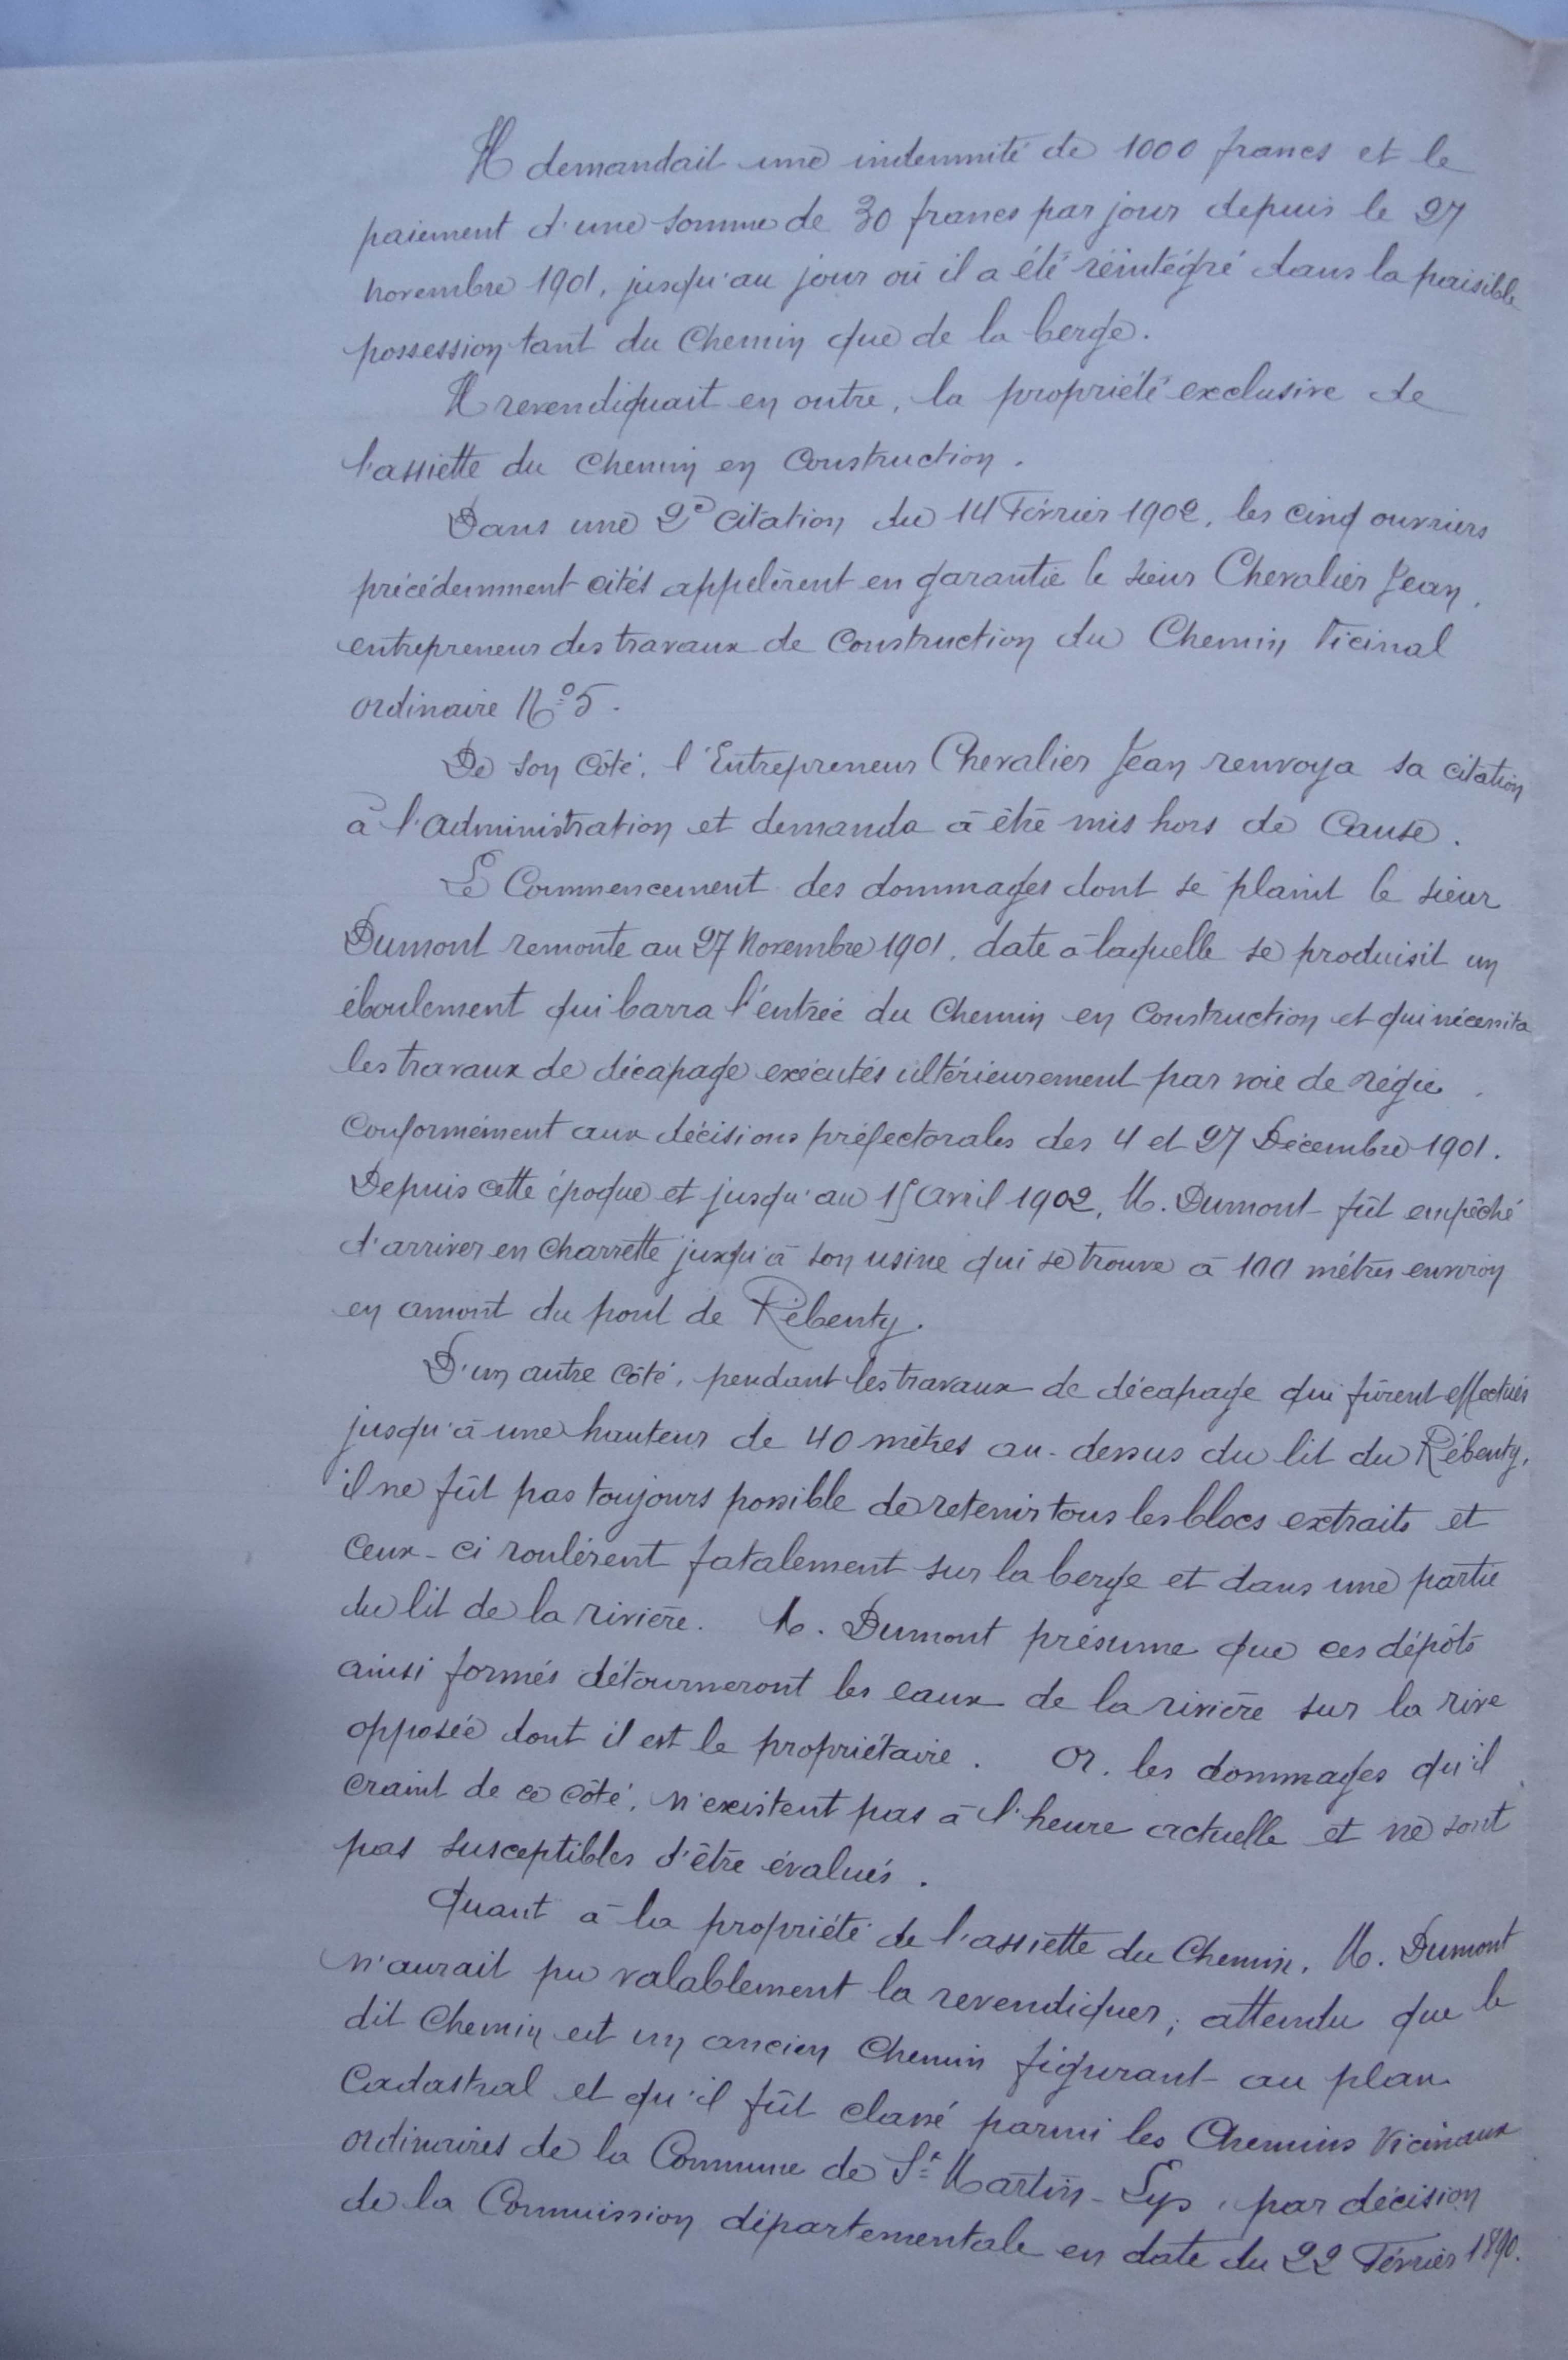 Il demandait une indemnité de 1000 francs et le
paiement d'une somme de 30 francs par jour depuis le 27
novembre 1901, jusqu'au jour où il a été réintégré dans la paisible
possession tant du Chemin que de la berge.
Il revendiquait en outre, la propriété exclusive de
l'assiette du Chemin en Construction.
Dans une 2e Citation du 14 Février 1902, les cinq ouvriers
précédemment cités appelèrent en garantie le sieur Chevalier Jean,
entrepreneur des travaux de Construction du Chemin Vicinal
ordinaire No 5.
De son Côté, l'Entrepreneur Chevalier Jean renvoya sa citation
à l'Administration et demanda à être mis hors de Cause.
Le Commencement des dommages dont se plaint le sieur
Dumont remonte au 27 Novembre 1901, date à laquelle se produisit un
éboulement qui barra l'entrée du Chemin en Construction et qui nécessita
les travaux de décapage exécutés ultérieurement par voie de régie,
Conformément aux décisions préfectorales des 4 et 27 Décembre 1901.
Depuis cette époque et jusqu'au 15 Avril 1902, M. Dumont fût empêché
d'arriver en Charrette jusqu'à son usine qui se trouve à 100 mètres environ
en amont du pont de Rébenty.
D'un autre Côté, pendant les travaux de décapage qui fûrent effectués
jusqu'à une hauteur de 40 mètres au-dessus du lit du Rébenty,
il ne fût pas toujours possible de retenir tous les blocs extraits et
Ceux-ci roulèrent fatalement sur la berge et dans une partie
du lit de la rivière. M. Dumont présume que ces dépôts
ainsi formés détourneront les eaux de la rivière sur la rive
opposée dont il est le propriétaire. Or, les dommages qu'il
craint de ce côté, n'existent pas à l'heure actuelle et ne sont
pas susceptibles d'être évalués.
Quant à la propriété de l'assiette du Chemin, M. Dumont
n'aurait pu valablement la revendiquer, attendu que le
dit Chemin est un ancien Chemin figurant au plan
Cadastral et qu'il fût classé parmi les Chemins Vicinaux
ordinaires de la Commune de St Martin-Lys, par décision
de la Commission départementale en date du 22 Février 1890.